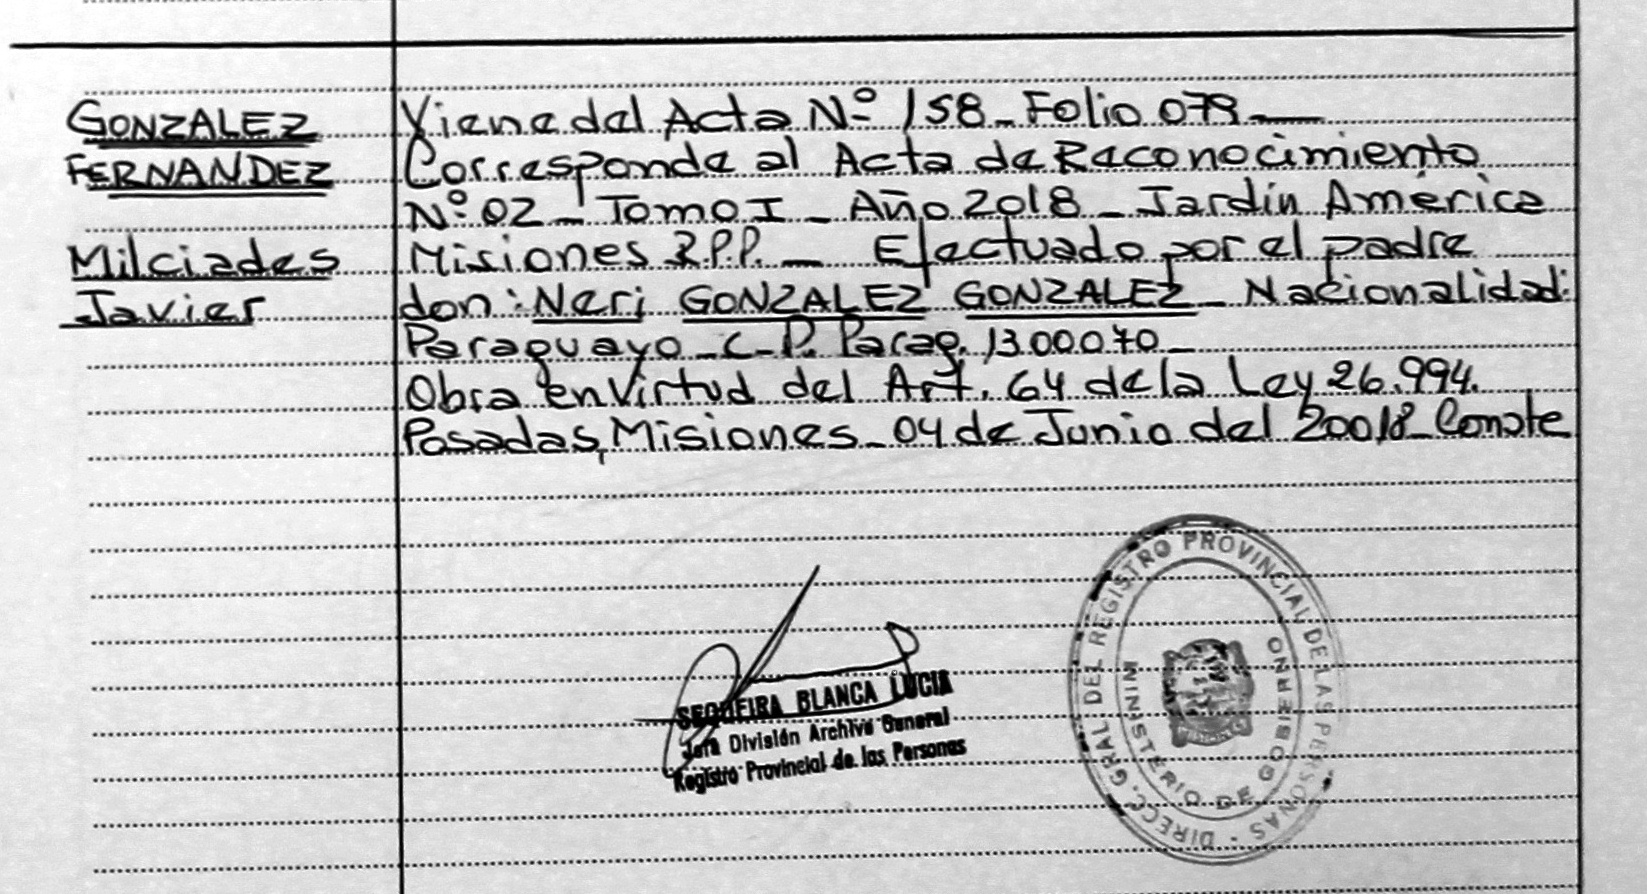 GONZALEZ
FERNANDEZ
Milciades
Javier
Viene del Acta Nº 158_Folio 079_
Corresponde al Acta de Reconocimiento
Nº 02 _ Tomo I _ Año 2018 _ Jardín América
Misiones R.P.P. _ Efectuado por el padre
don: Neri GONZALEZ GONZALEZ _ Nacionalidad:
Paraguayo _ C_P. Parag. 1300070_
Obra en Virtud del Art. 64 de la Ley 26.994.
Posadas, Misiones_04 de Junio del 20018_Conste
SEQUEIRA BLANCA LUCIA
Jefa División Archivo General
Registro Provincial de las Personas
DIRECC. GRAL DEL REGISTRO PROVINCIAL DE LAS PERSONAS
MINISTERIO DE GOBIERNO